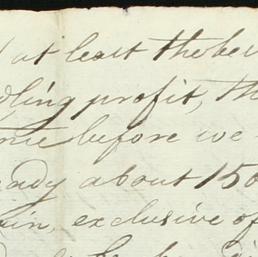 at least the be
dling profit, th
me before we
eady about 150
in, exclusive of